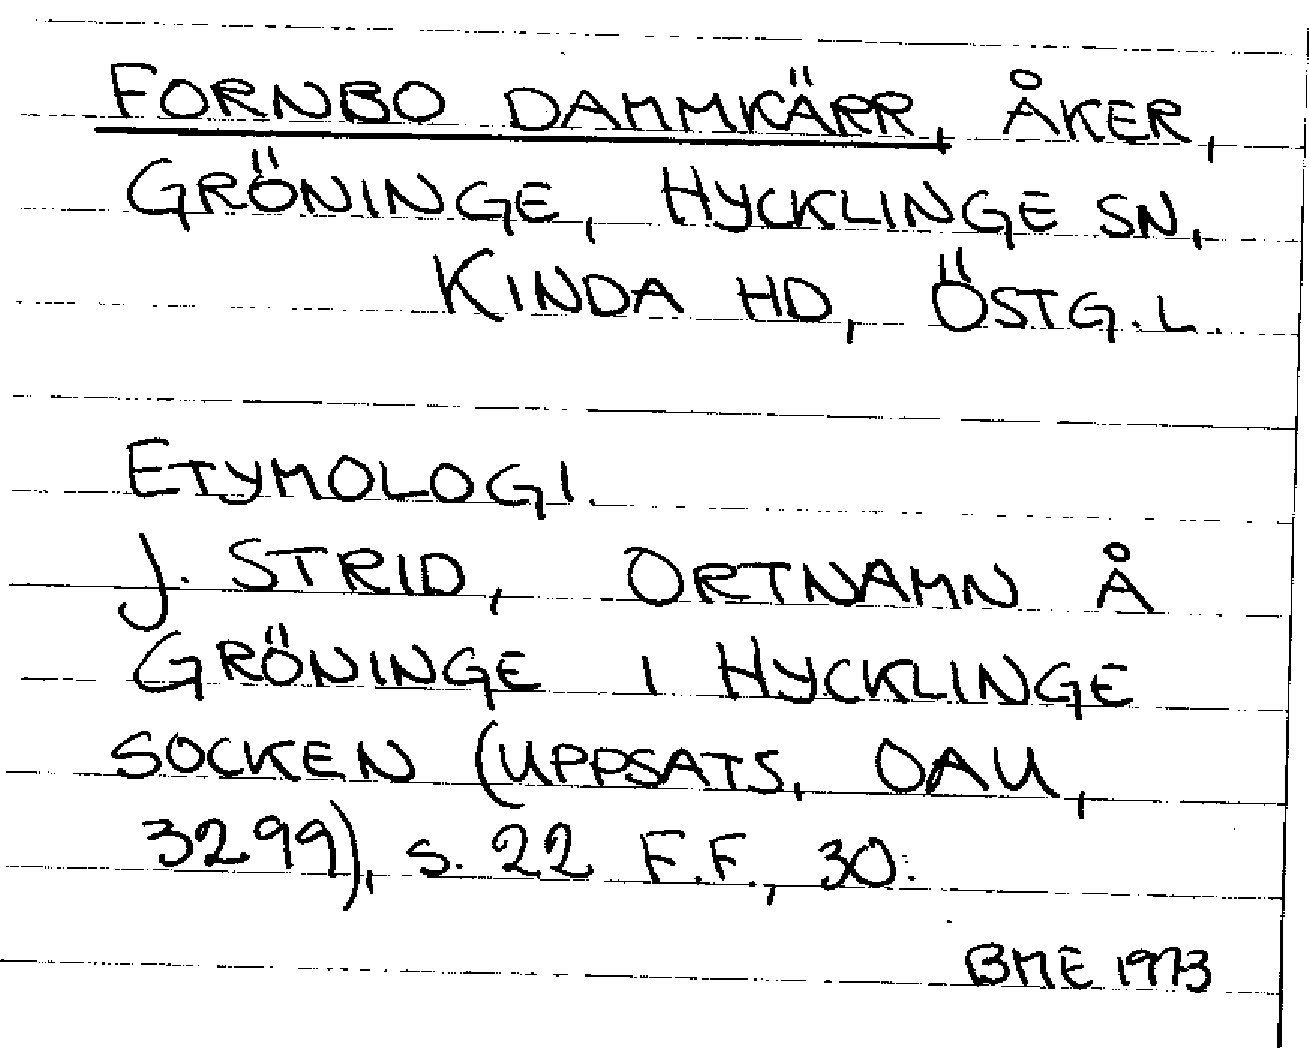 FORNBO DAMMKÄRR, ÅKER,
GRÖNINGE, HYCKLINGE SN,
KINDA HD, ÖSTG. L.
ETYMOLOGI.
J. STRID, ORTNAMN Å
GRÖNINGE I HYCKLINGE
SOCKEN (UPPSATS, OAU,
3299), S. 22 F.F., 30.
BME 1973